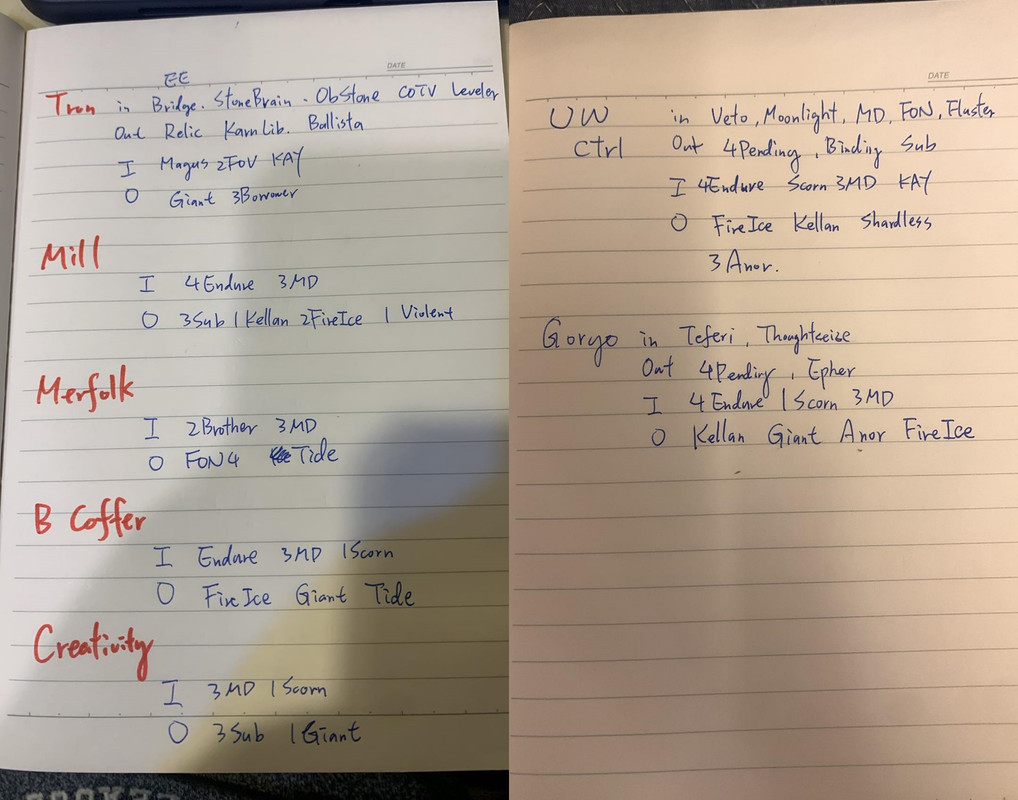 DATE
EE
Tron in Bridge. StoneBrain. ObStone COTV Leveler
Out Relic KarnLib. Ballista
I Magus 2FOV KAY
O Giant 3Borrower
Mill
I 4Endure 3MD
O 3Sub 1Kellan 2FireIce 1 Violent
Merfolk
I 2Brother 3MD
O FON4 Tide
B Coffer
I Endure 3MD 1Scorn
O FireIce Giant Tide
Creativity
I 3MD 1Scorn
O 3Sub 1Giant
DATE
UW in Veto, Moonlight, MD, FON, Fluster
Ctrl Out 4Pending, Binding Sub
I 4Endure Scorn 3MD KAY
O FireIce Kellan Shardless
3 Anor.
Goryo in Teferi, Thoughtseize
Out 4Pending, Epher
I 4Endure 1Scorn 3MD
O Kellan Giant Anor FireIce